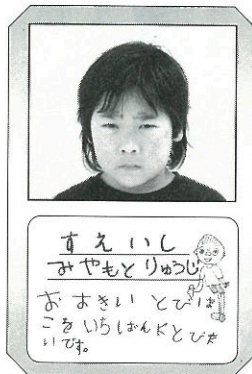 すえいし
みやもとりゅうじ
おおきい とびば
こをいちばんにとびた
いです。